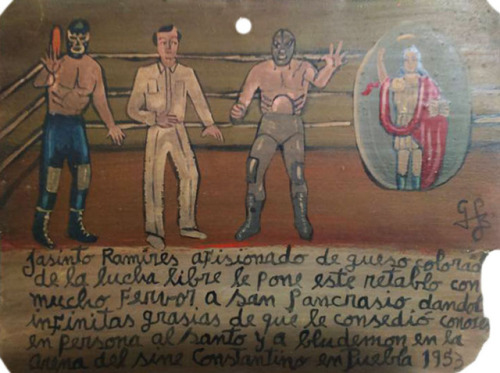 Jasinto Ramires afisionado de gueso colorad
de la lucha libre le pone este retablo con
mucho fervor a San Pancrasio dandole
infinitas grasias de que le consedió conocer
en persona al Santo y a bludemon en la
arena del sine Constantino en Puebla 1953